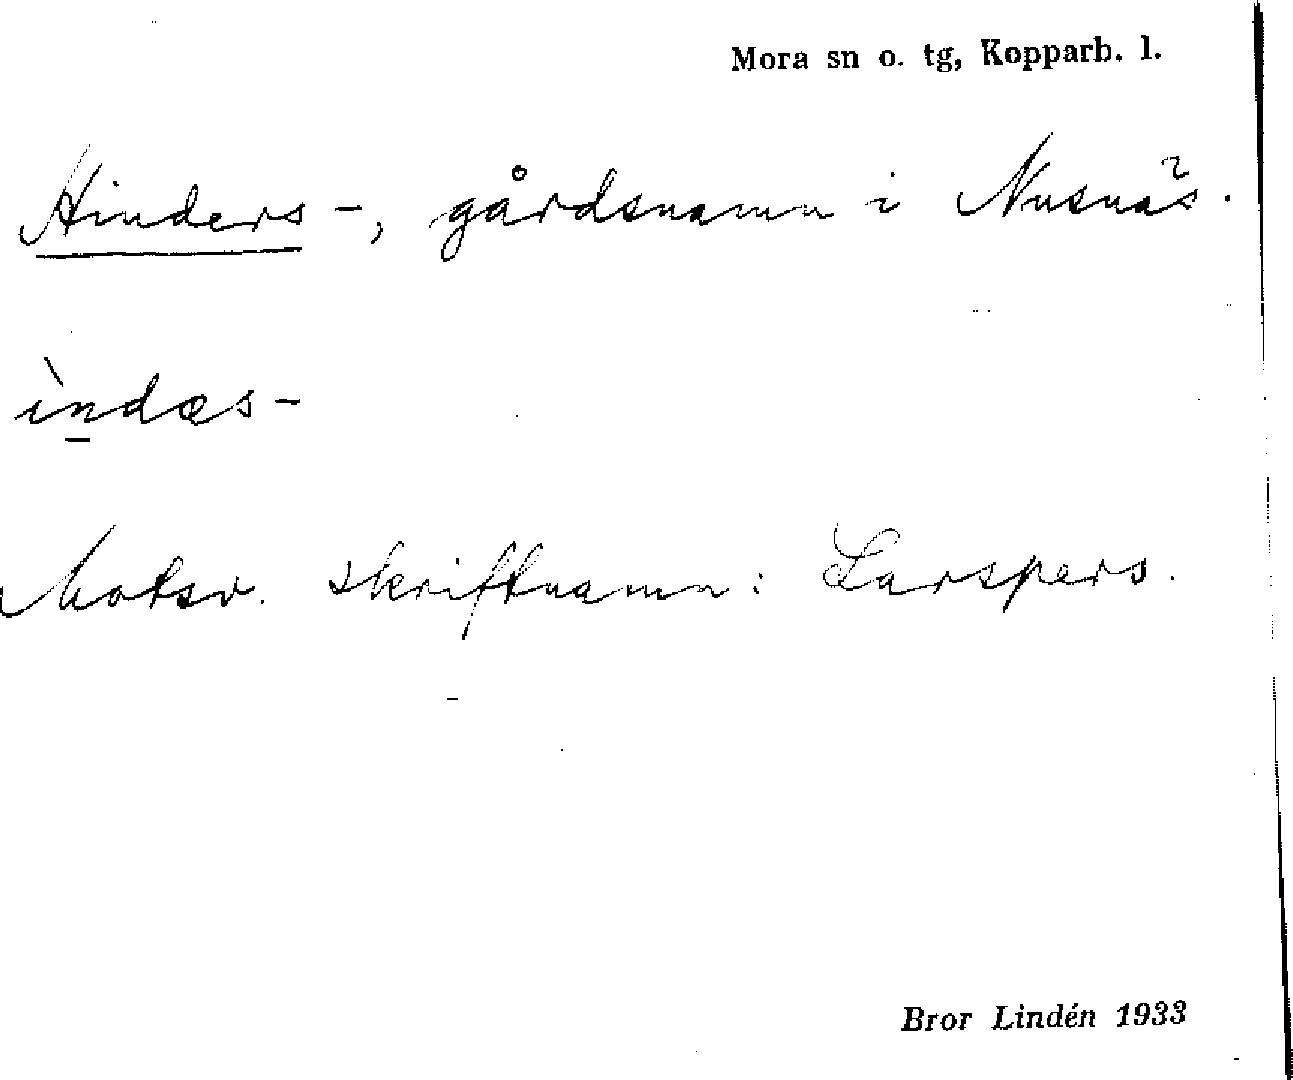 Mora sn o. tg, Kopparb. l.
Hinders-, gårdsnamn i Nusnäs.
ìn̲dæs-
Motsv. skriftnamn: Larspers.
Bror Lindén 1933